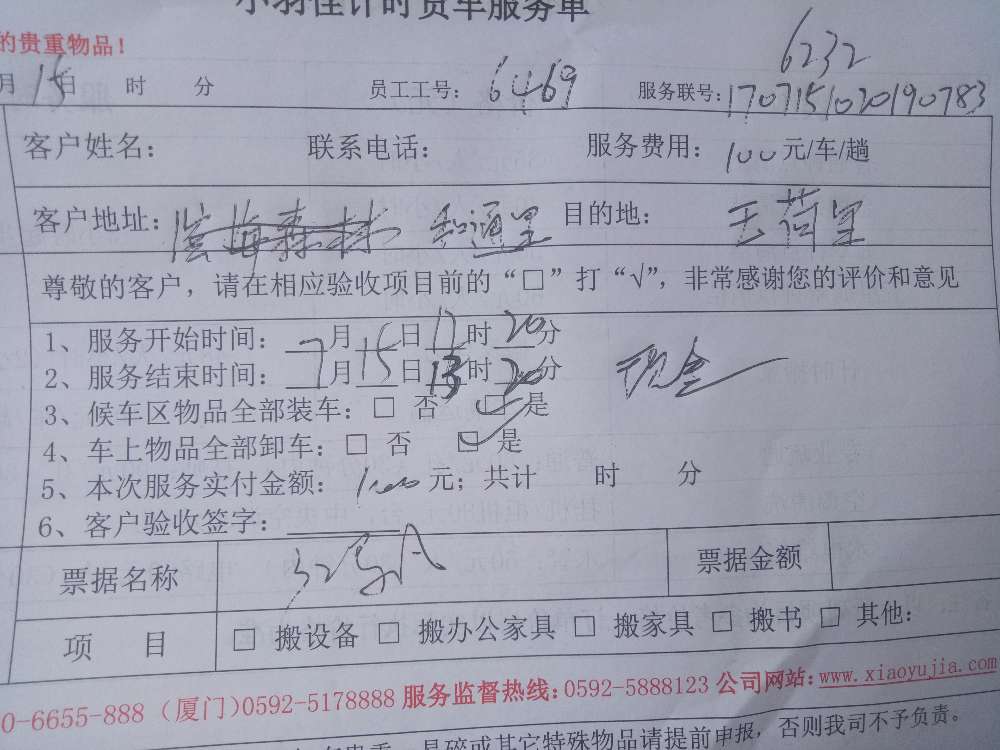 小羽佳计时货车服务单
的贵重物品！
6232
月15日 时 分 员工工号：6469 服务联号：1707151020190783
客户姓名： 联系电话： 服务费用：100元/车/趟
客户地址：滨海森林 和通里 目的地：玉荷里
尊敬的客户，请在相应验收项目前的“□”打“√”，非常感谢您的评价和意见
1、服务开始时间：7月15日12时20分
2、服务结束时间：7月15日13时20分 现金
3、候车区物品全部装车：□ 否 ☑ 是
4、车上物品全部卸车：□ 否 ☑ 是
5、本次服务实付金额：100元；共计 时 分
6、客户验收签字：
票据名称 票据金额
项 目 □ 搬设备 □ 搬办公家具 □ 搬家具 □ 搬书 □ 其他：
0-6655-888（厦门）0592-5178888 服务监督热线：0592-5888123 公司网站：www.xiaoyujia.com
易碎或其它特殊物品请提前申报，否则我司不予负责。